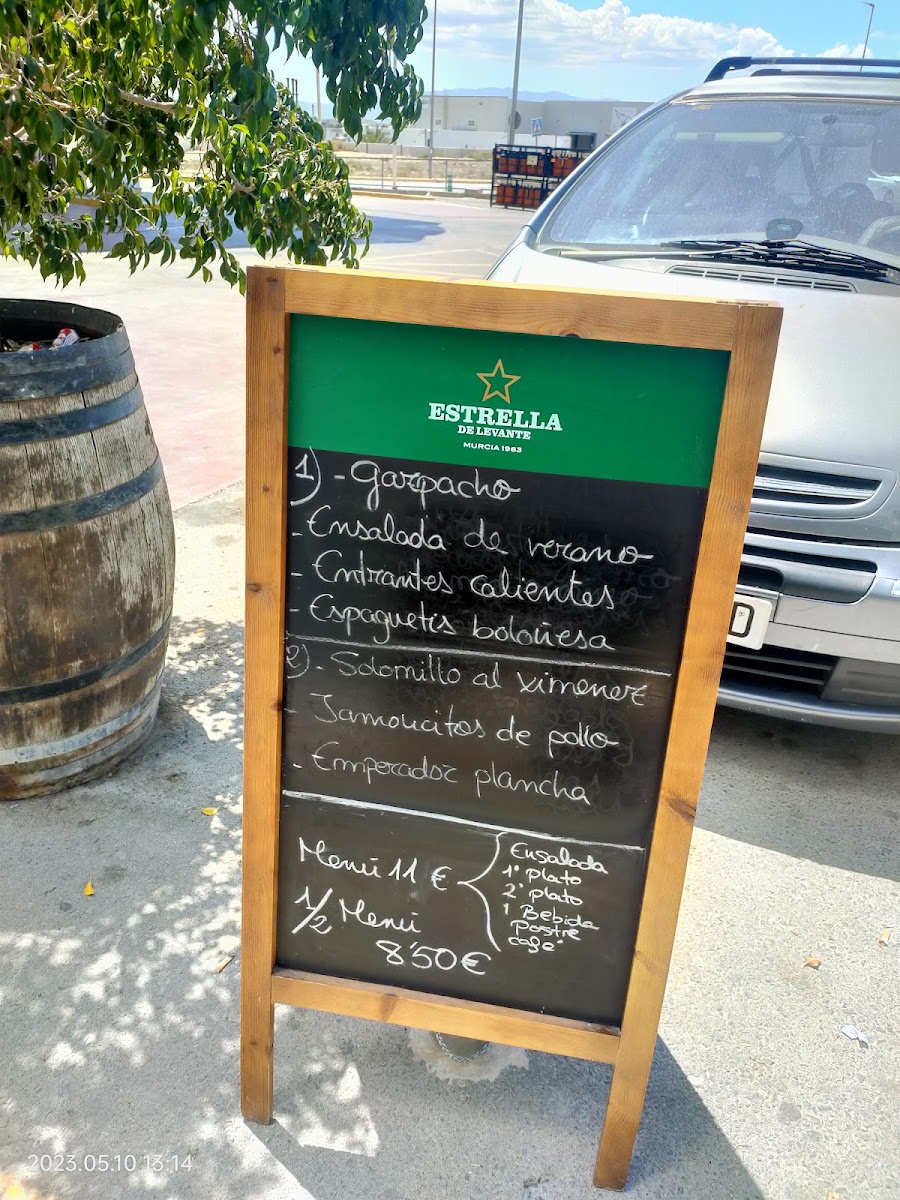 ESTRELLA
DE LEVANTE
MURCIA 1963
1) - Gazpacho
- Ensalada de verano
- Entrantes calientes
- Espaguetis boloñesa
2) - Solomillo al ximenez
- Jamoncitos de pollo
- Emperador plancha
Menú 11 €
1/2 Menú
8'50€
Ensalada
1º plato
2º plato
1 Bebida
Postre
café
2023.05.10 13:14